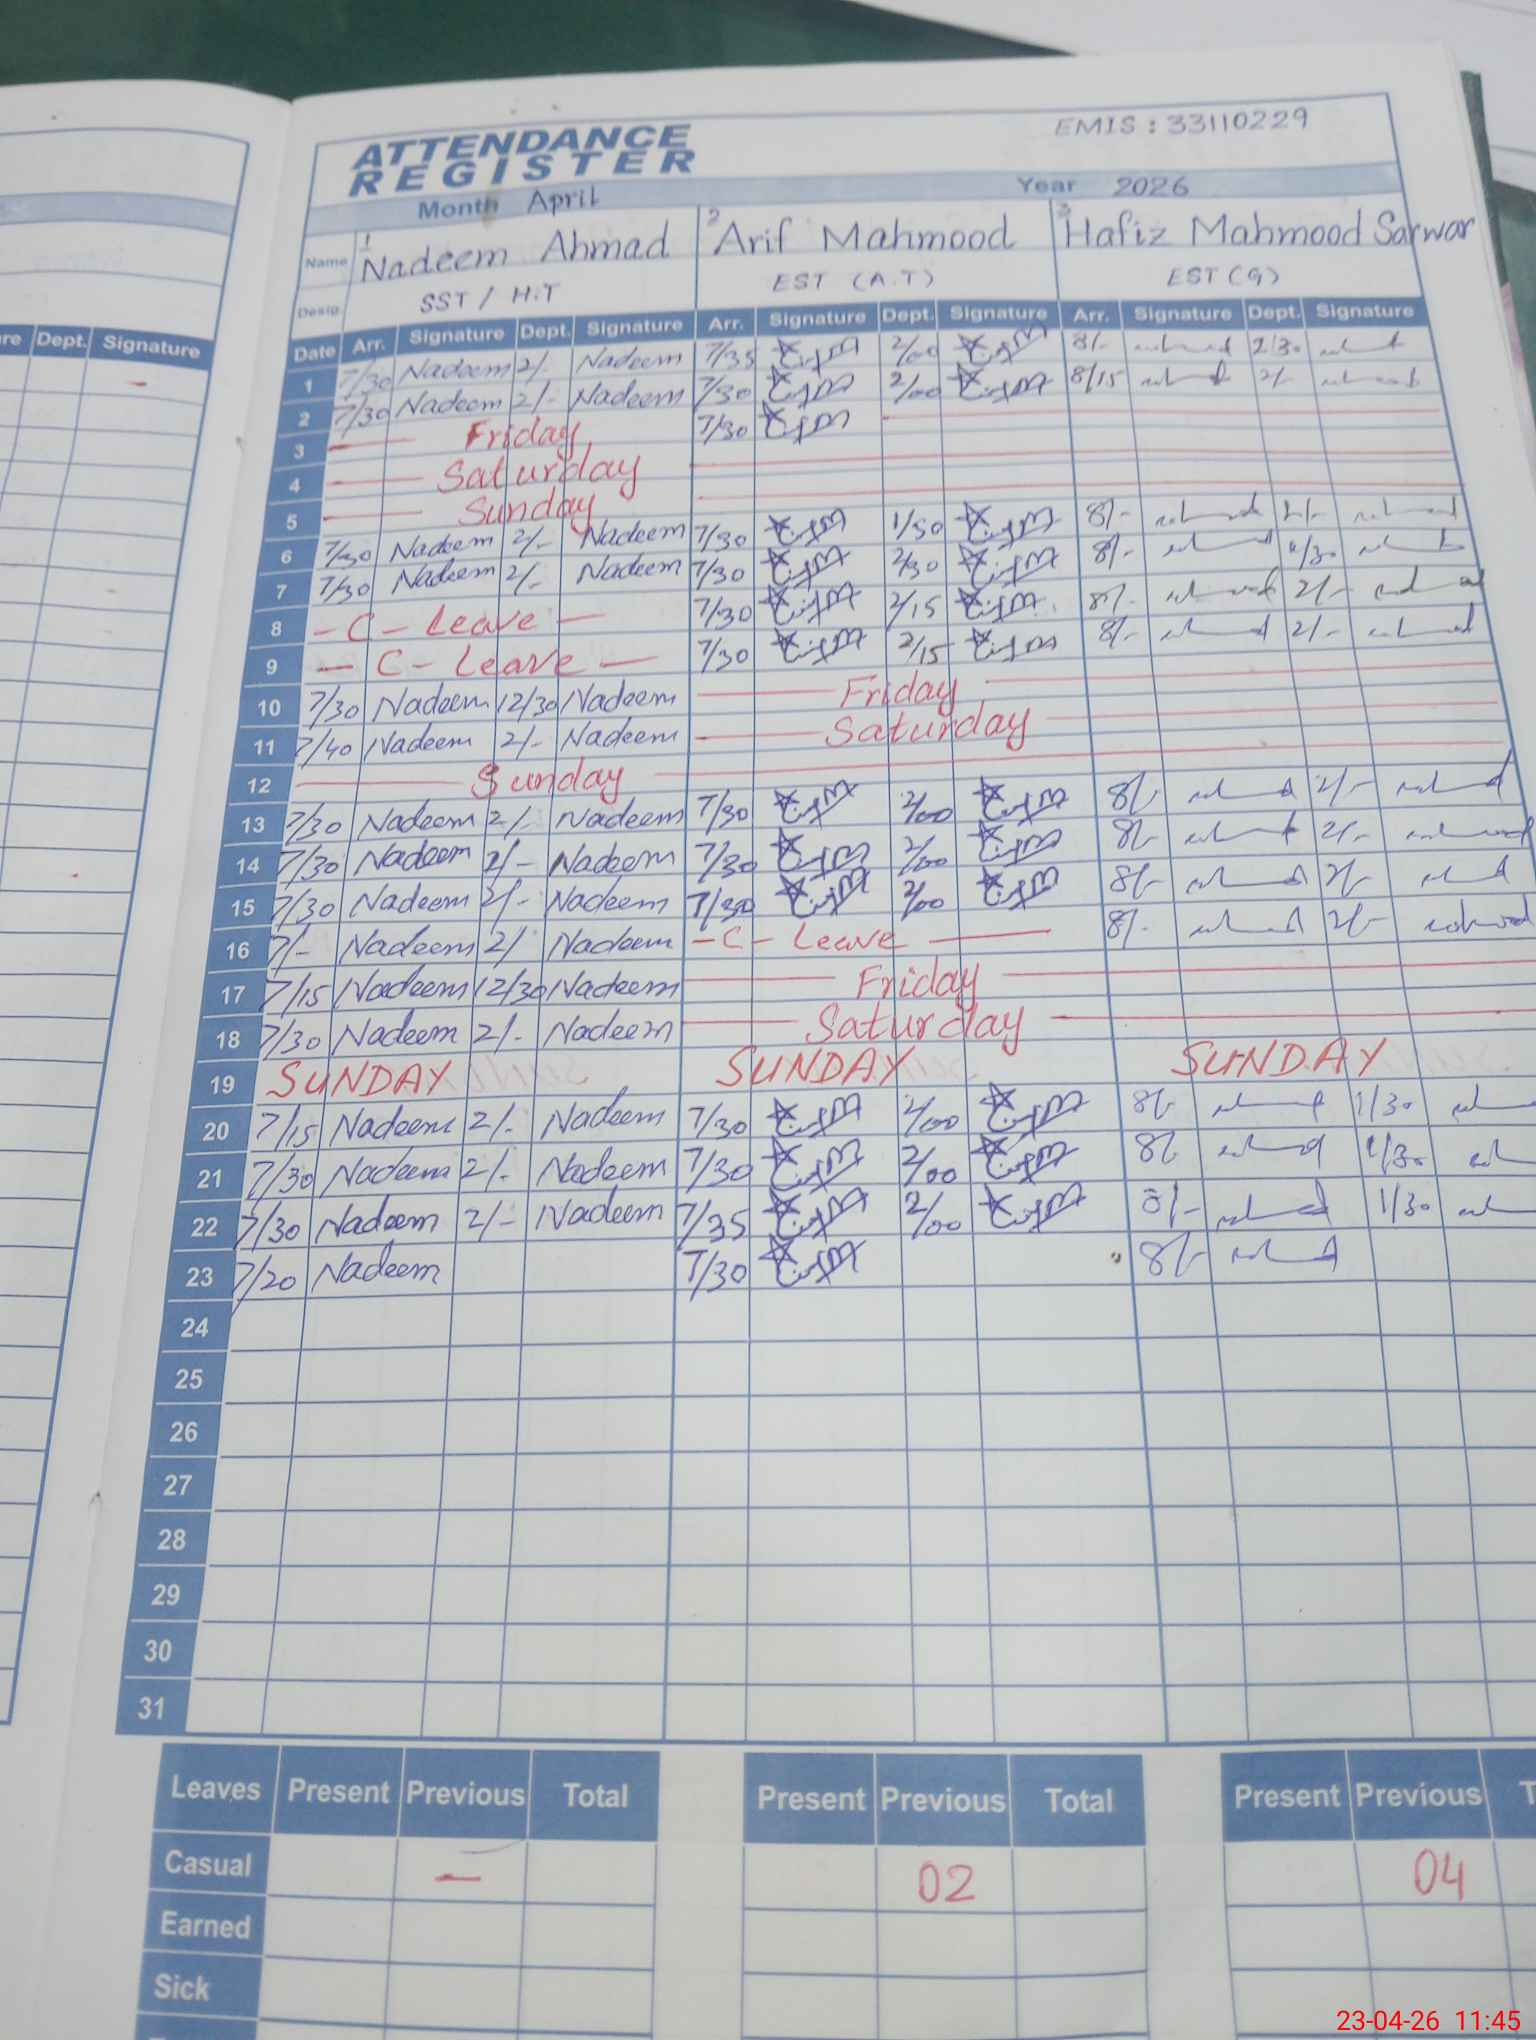 ATTENDANCE
REGISTER
EMIS : 33110229
Month April Year 2026
Name 1 Nadeem Ahmad 2 Arif Mahmood 3 Hafiz Mahmood Sarwar
Desig. SST / H.T EST (A.T) EST (G)
Dept. Signature
Date Arr. Signature Dept. Signature Arr. Signature Dept. Signature Arr. Signature Dept. Signature
1 7/30 Nadeem 2/- Nadeem 7/35 2/00 8/- 2/30
2 7/30 Nadeem 2/- Nadeem 7/30 2/00 8/15 2/-
3 Friday 7/30
4 Saturday
5 Sunday
6 7/30 Nadeem 2/- Nadeem 7/30 1/30 8/- 2/-
7 7/30 Nadeem 2/- Nadeem 7/30 2/30 8/-
8 - C - Leave - 7/30 2/15 8/- 2/-
9 - C - Leave - 7/30 2/15 8/- 2/-
10 7/30 Nadeem 12/30 Nadeem Friday
11 7/40 Nadeem 2/- Nadeem Saturday
12 Sunday
13 7/30 Nadeem 2/- Nadeem 7/30 2/00 8/- 2/-
14 7/30 Nadeem 2/- Nadeem 7/30 2/00 8/- 2/-
15 7/30 Nadeem 2/- Nadeem 7/30 2/00 8/- 2/-
16 7/- Nadeem 2/- Nadeem - C - Leave - 8/- 2/-
17 7/15 Nadeem 12/30 Nadeem Friday
18 7/30 Nadeem 2/- Nadeem Saturday
19 SUNDAY SUNDAY SUNDAY
20 7/15 Nadeem 2/- Nadeem 7/30 2/00 8/- 1/30
21 7/30 Nadeem 2/- Nadeem 7/30 2/00 8/- 1/30
22 7/30 Nadeem 2/- Nadeem 7/35 2/00 8/- 1/30
23 7/20 Nadeem 7/30 8/-
24
25
26
27
28
29
30
31
Leaves Present Previous Total Present Previous Total Present Previous
Casual — 02 04
Earned
Sick
23-04-26 11:45